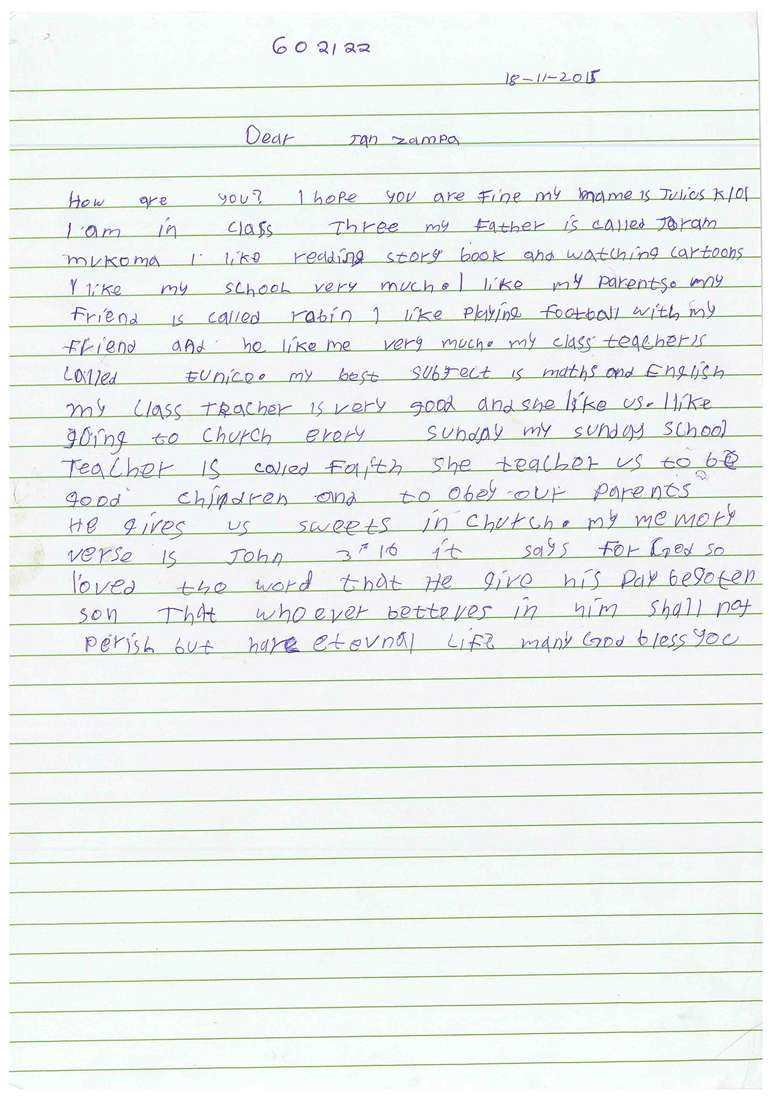 602122
18-11-2015
Dear Jan Zampa
How are you? I hope you are fine my name is Julios K/01
I am in class Three my Father is called Joram
mukoma I like reading story book and watching cartoons
I like my school very much. I like my parents. my
Friend is called robin I like playing football with my
Friend and he like me very much. my class teacher is
called Eunice. my best subject is maths and English
my class teacher is very good and she like us. I like
going to church every sunday my sunday school
Teacher is called Faith she teacher us to be
good chindren and to obey our parents
He gives us sweets in church. my memory
verse is John 3:16 it says For God so
loved the word that He give his begoten
son That who ever betteves in him shall not
perish but have eternal Life many God bless you